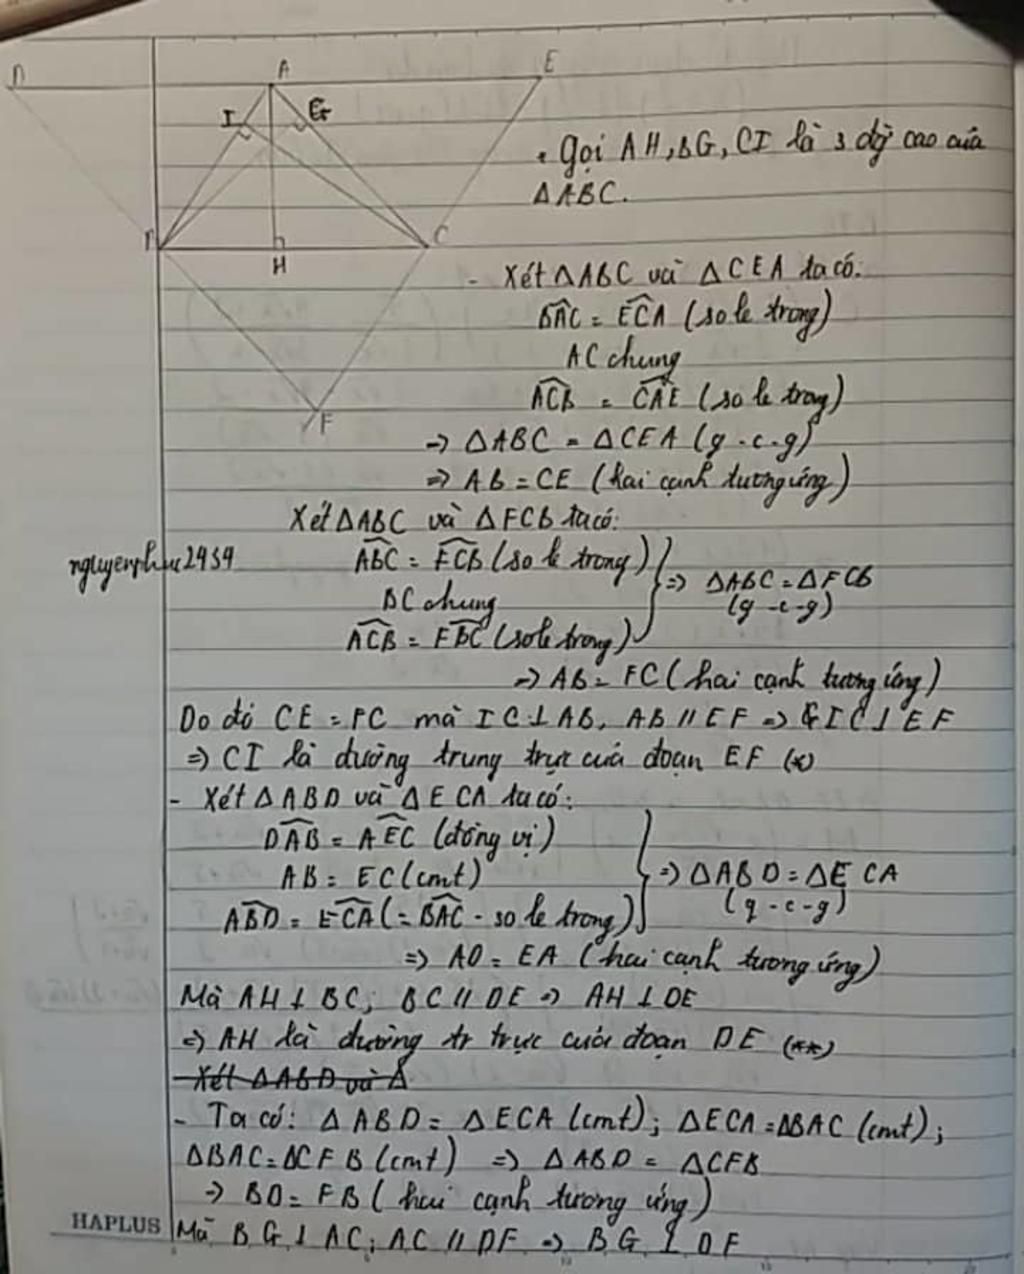 D
A
E
I
G
B
C
H
F
. Gọi AH, BG, CI là 3 dg̀ cao của
ΔABC.
- Xét ΔABC và ΔCEA ta có:
BAC = ECA (so le trong)
AC chung
ACB = CAE (so le trong)
=> ΔABC = ΔCEA (g - c - g)
=> AB = CE (hai cạnh tương ứng)
Xét ΔABC và ΔFCB ta có:
nguyenphuc2434
ABC = FCB (so le trong)
BC chung
=> ΔABC = ΔFCB
(g - c - g)
ACB = FBC (so le trong)
=> AB = FC (hai cạnh tương ứng)
Do đó CE = FC mà IC ⊥ AB, AB // EF => IC ⊥ EF
=> CI là đường trung trực của đoạn EF (*)
- Xét ΔABD và ΔECA ta có:
DAB = AEC (đồng vị)
AB = EC (cmt)
=> ΔABD = ΔECA
(g - c - g)
ABD = ECA (= BAC - so le trong)
=> AD = EA (hai cạnh tương ứng)
Mà AH ⊥ BC; BC // DE => AH ⊥ DE
=> AH là đường tr trực của đoạn DE (**)
Xét ΔABD và Δ
- Ta có: ΔABD = ΔECA (cmt); ΔECA = ΔBAC (cmt);
ΔBAC = ΔCFB (cmt) => ΔABD = ΔCFB
=> BD = FB (hai cạnh tương ứng)
HAPLUS
Mà BG ⊥ AC; AC // DF => BG ⊥ DF